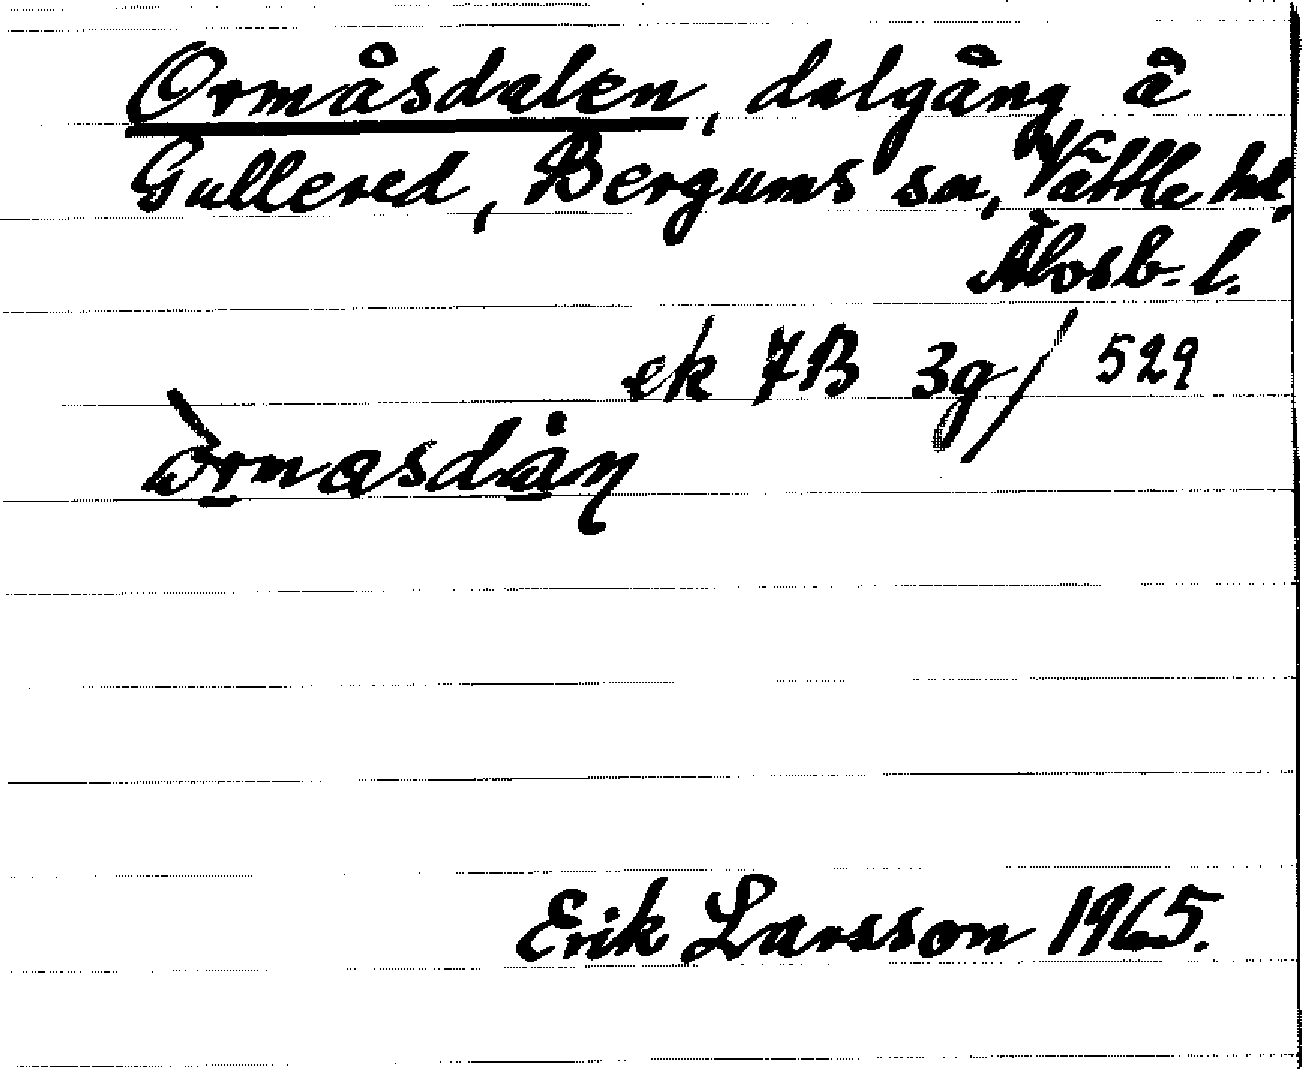 Ormåsdalen, dalgång å
Gullered, Bergums sn, Vättle hd,
Älvsb. l.
ek 7B 3g/529
Erik Larsson 1965.